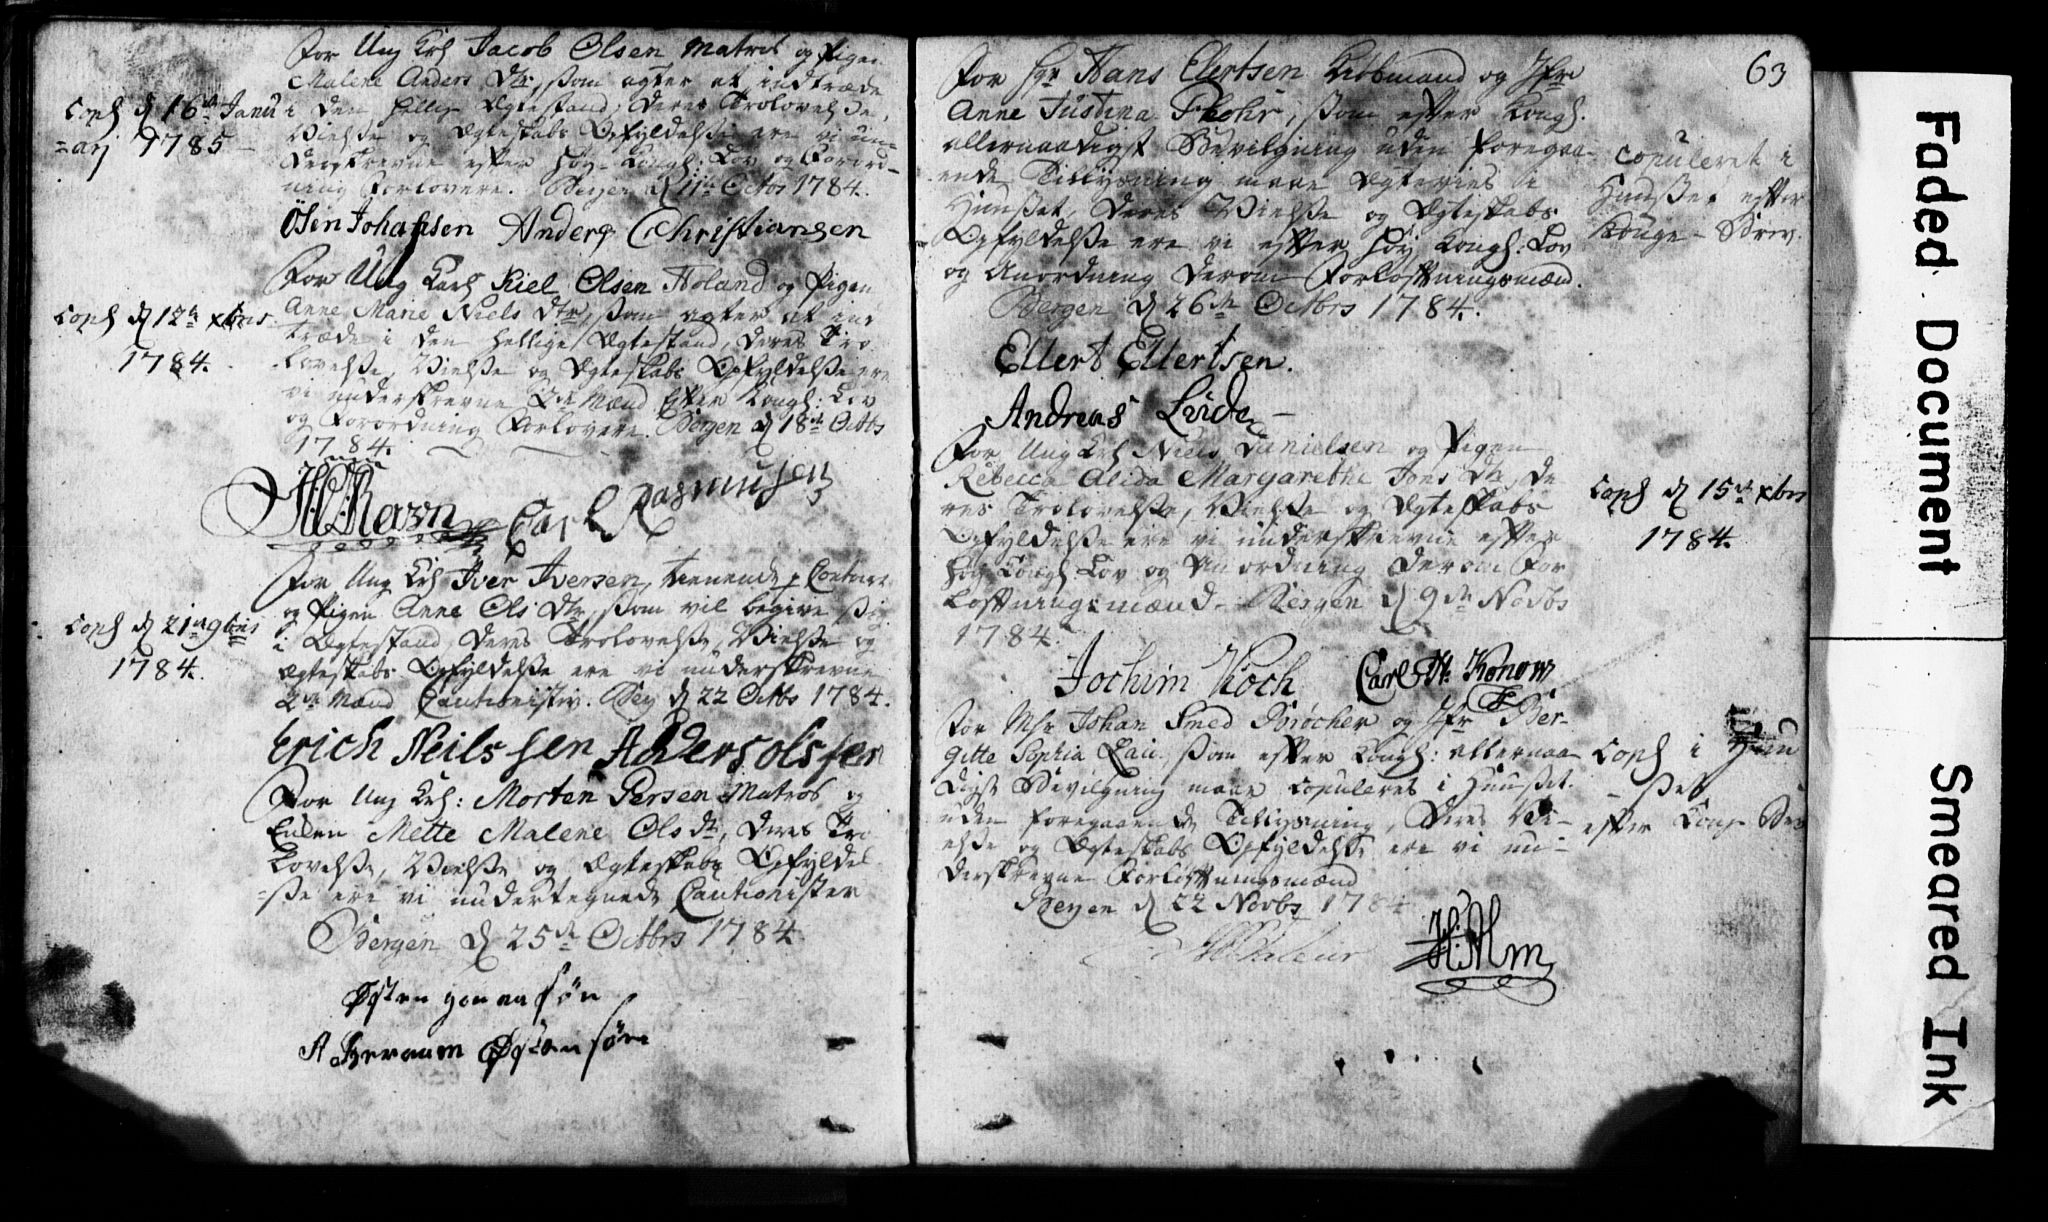 For Ung Krl Jacob Olsen Matros og Pigen
Malene Anders Dtr, som agter at indtræde
i den hellig Ægtestand, deres Trolovelse,
Vielse og Ægteskabs Opfyldelse ere vi un-
derskrevne efter Høy Kongl: Lov og Forord-
ning Forlovere. Bergen d 11te Octbr 1784.
Copl d 16de Janu
=arj 1785
Osin Johansen Anders Christiansen
For Ung Karl Kiel Olsen Holand og Pigen
Anne Marie Niels Dtr, som agter at ind
træde i den hellige Ægtestand, deres Tro
lovelse, Vielse og Ægteskabs Opfyldelse ere
vi underskrevne 2de Mænd efter Kongl: Lov
og Forordning Forlovere. Bergen d 18de Octbs
1784.
Copl d 12te xbris
1784.
Ravn Carl Rasmusen
For Ung Krl Iver Iversen, tienende
og Pigen Anne Ols Dtr, som vil begive sig
i Ægtestand, deres Trolovelse, Vielse og
Ægteskabs Opfyldelse ere vi underskrevne
2de Mænd Cautionister. Berg d 22 Octbs 1784.
Copl d 21de 9bris
1784.
Erich Neilssen Anders olssen
For Ung Krl: Morten Persen Matros og
Enken Mette Malene Ols dtr, deres Tro
lovelse, Vielse og Ægteskabs Opfyldel
=se ere vi undertegnede Cautionister
Bergen d 25de Octbrs 1784.
Østen søn
søn
63
For Hr Hans Elertsen Kiøbmand og Jfr
Anne Justina, som efter Kongl.
allernaadigst Bevilgning uden foregaa-
ende Tillysning maae Ægtevies i
Huuset, deres Vielse og Ægteskabs
Opfyldelse ere vi efter Høy Kongl: Lov
og Anordning derom Forlovtningsmænd.
Bergen d 26de Octbrs 1784.
Copuleret i
Huuset efter
Konge-Brev.
Ellert Ellertsen.
Andreas
For Ung Krl Niels Danielsen og Pigen
Rebecca Alida Margarethe Jons Dtr, De
res Trolovelse, Vielse og Ægteskabs
Opfyldelse ere vi underskrevne efter
høy Kongl Lov og Anordning derom For
lovtningsmænd. Bergen d 9de Novbs
1784.
Copl d 15de xbris
1784.
Jochim Koch Carl Konow
For Msr Johan Smed og Jfr Ber-
gitte Sophia, som efter Kongl: allernaa
digst Bevilgning maae Copuleres i Huuset
uden foregaaende Tillysning, deres Vi-
else og Ægteskabs Opfyldelse ere vi un-
derskrevne Forlovtningsmænd
Bergen d 22 Novbs 1784
Copl i Huu
-set
efter Kong Brev
H: Alm
Faded Document
Smeared Ink